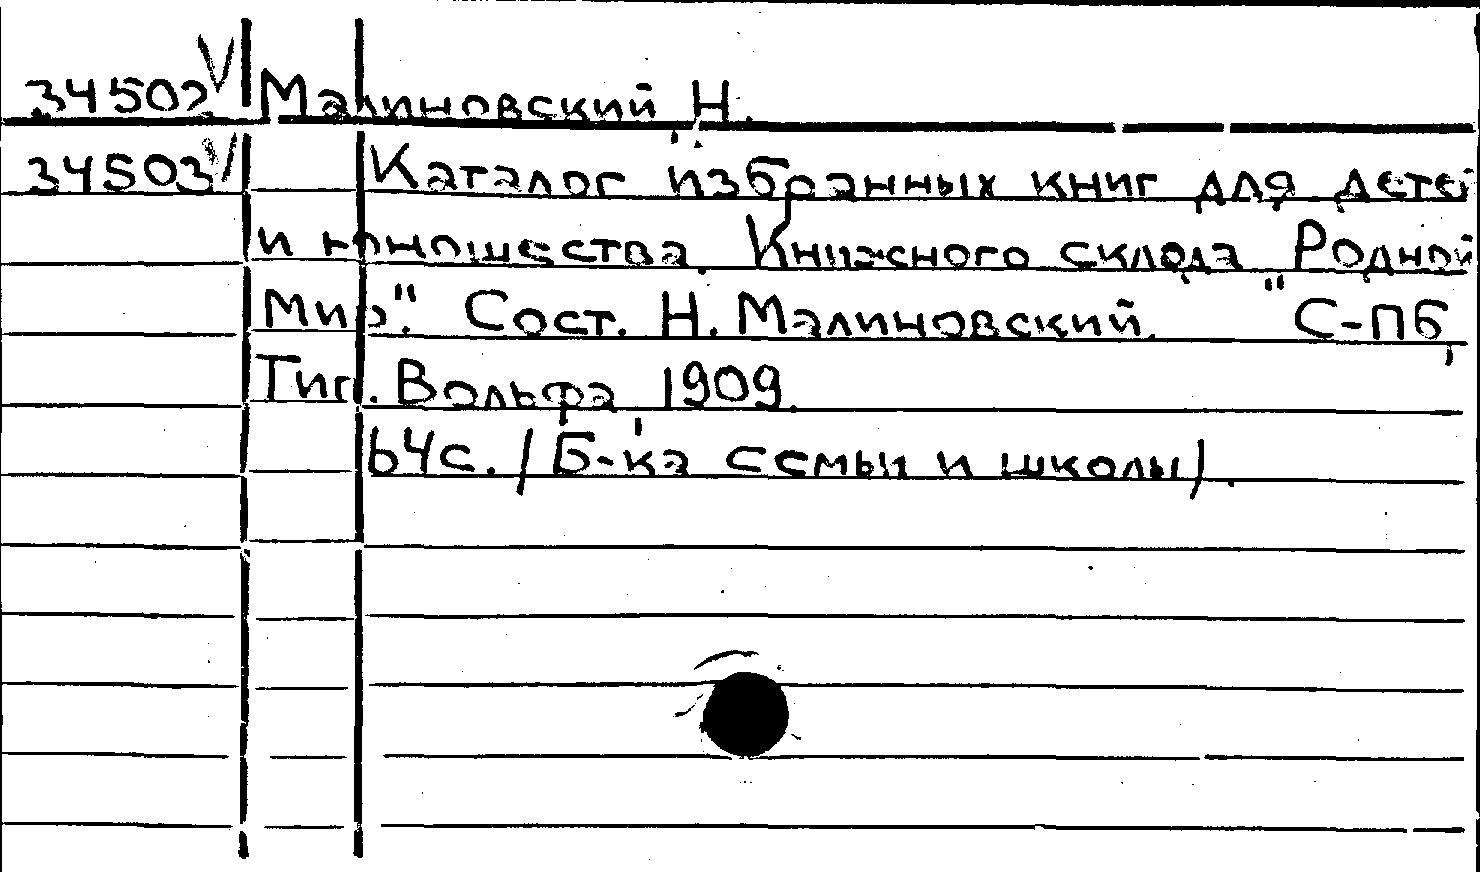 34502 V Малиновский, Н.
34503 V Каталог избранных книг для детей
и юношества. Книжного склада "Родной
Мир". Сост. Н. Малиновский. С-Пб,
Тип. Вольфа, 1909.
64с. /Б-ка семьи и школы/.